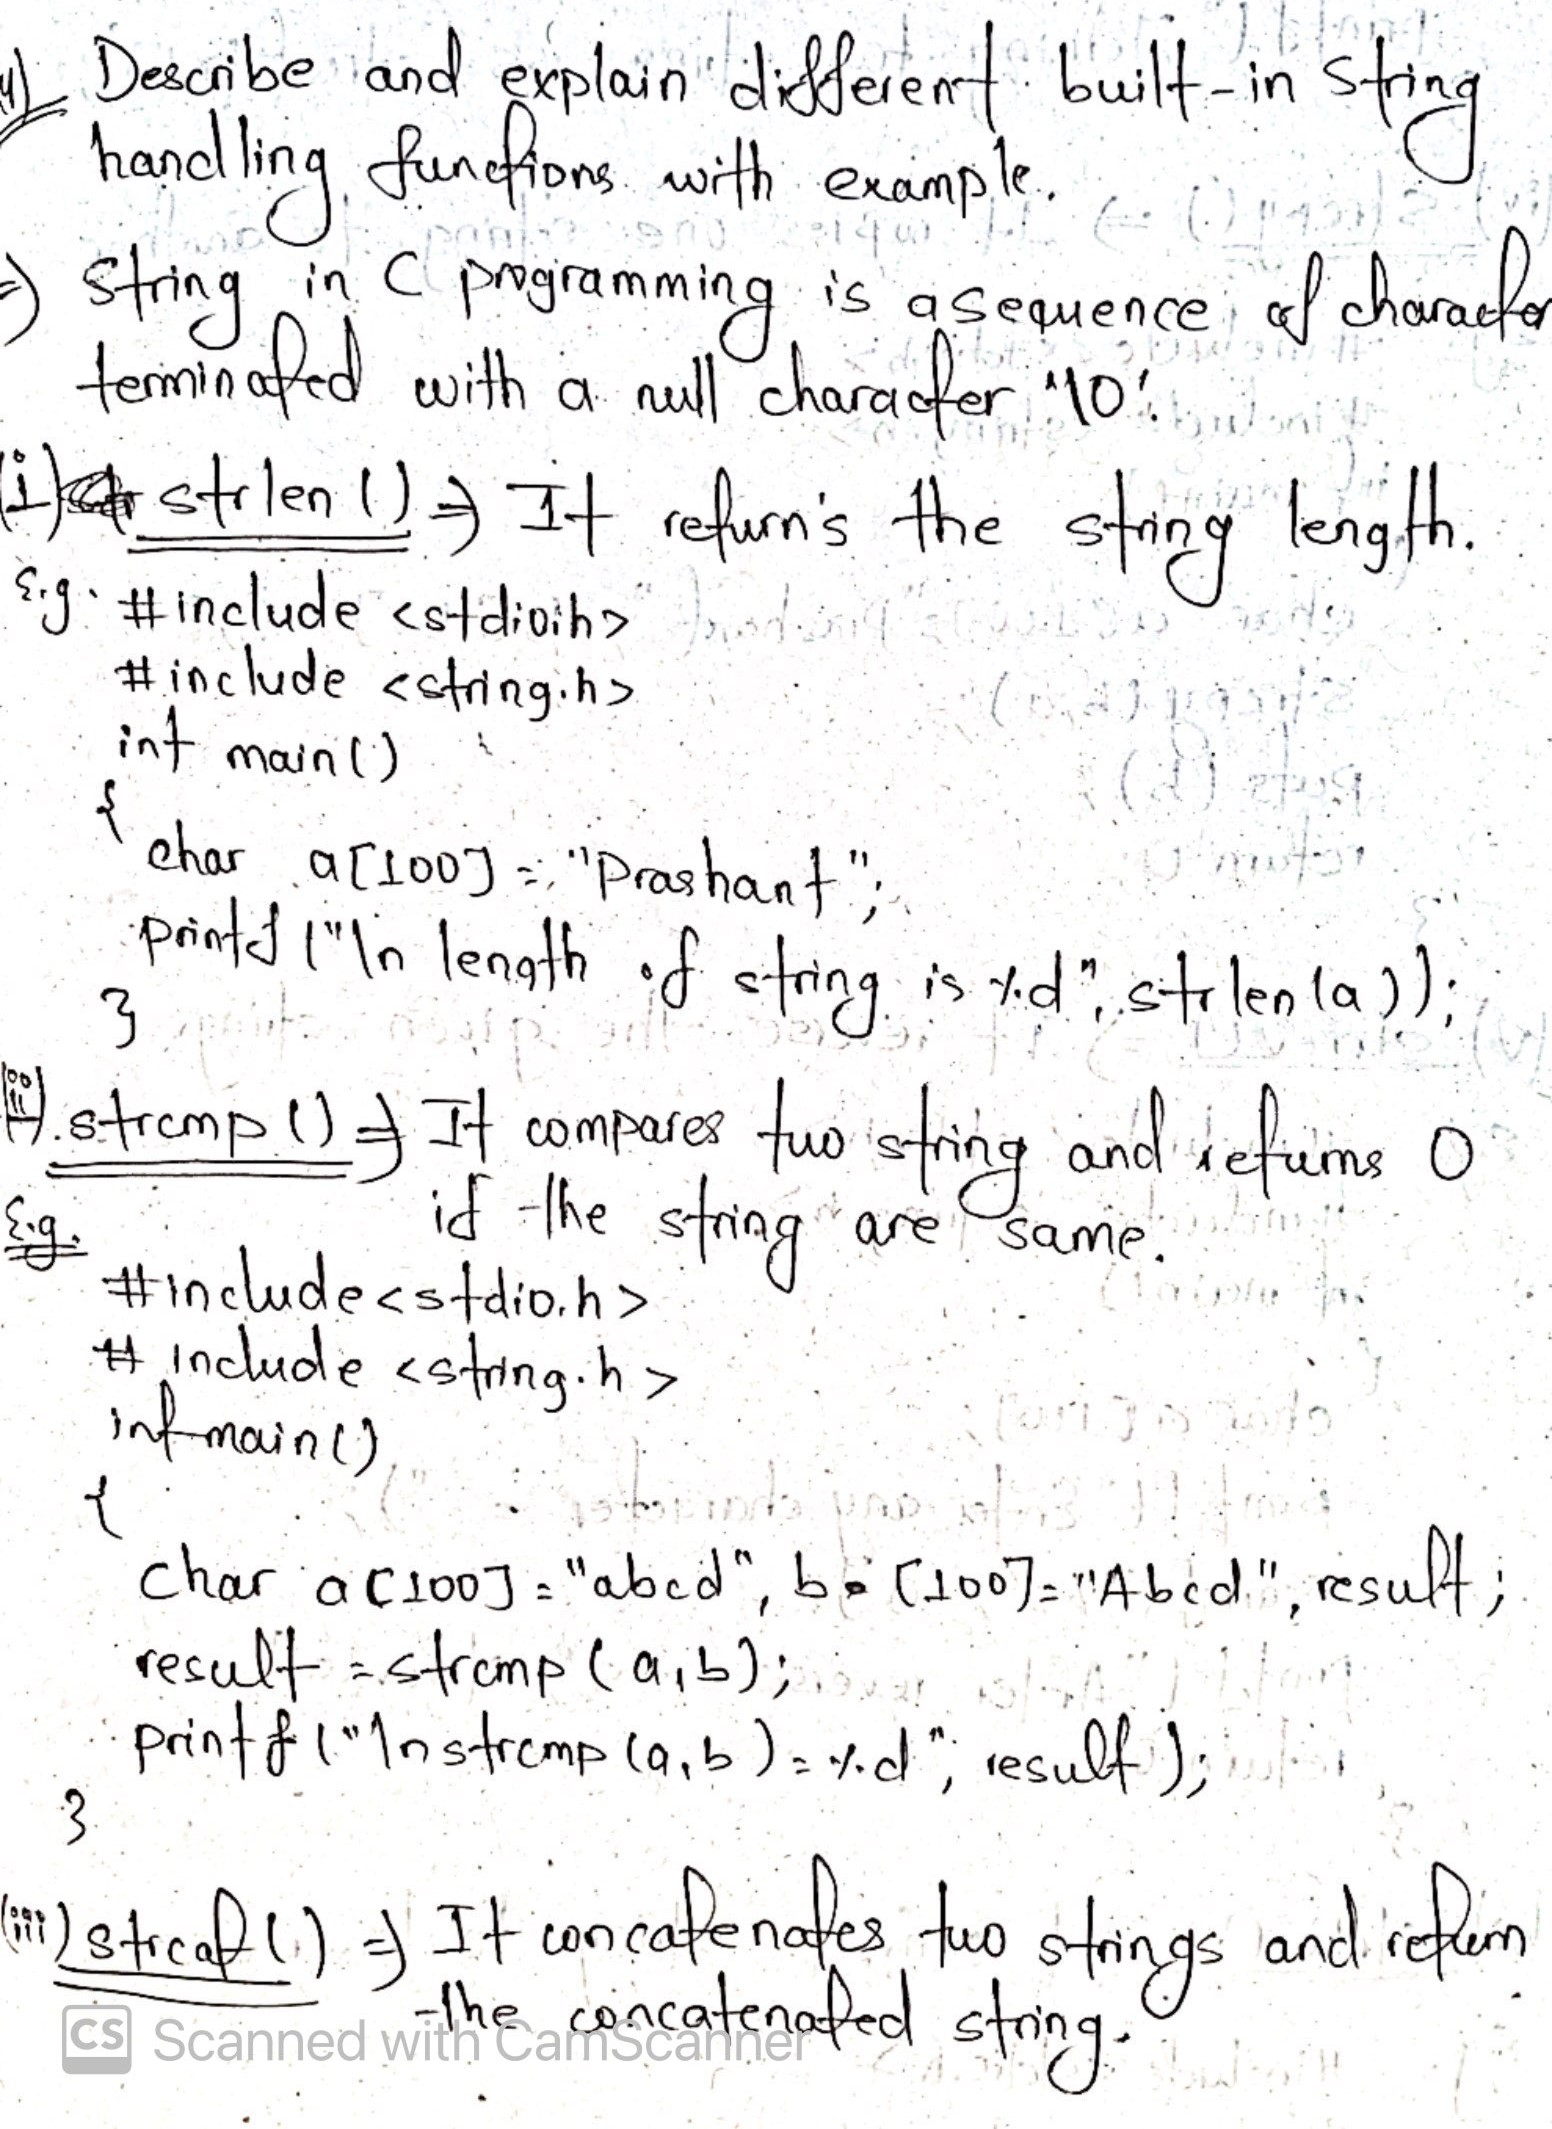 Describe and explain different built-in string
handling functions with example.
=) string in C programming is a sequence of character
terminated with a null character '\0'.
(i) strlen () => It return's the string length.
E.g. #include <stdio.h>
#include <string.h>
int main()
{
char a[100] = "Prashant";
printf ("\n length of string is %d", strlen(a));
}
(ii) strcmp () => It compares two string and returns 0
if the string are same.
E.g.
#include<stdio.h>
# include <string.h>
int main()
{
char a[100] = "abcd", b [100] = "Abcd", result;
result = strcmp (a,b);
printf ("\n strcmp (a,b) = %d", result);
}
(iii) strcat () => It concatenates two strings and return
the concatenated string.
CS Scanned with CamScanner